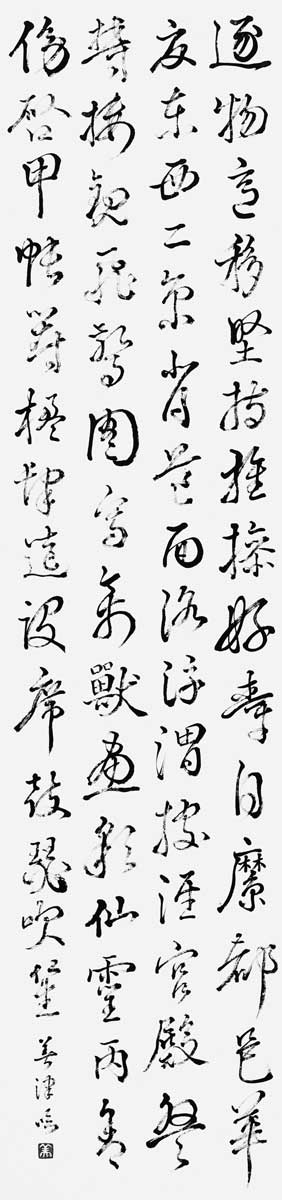 逐物意移堅持雅操好爵自縻都邑華
夏東西二京背邙面洛浮渭據涇宮殿盤
鬱樓觀飛驚圖寫禽獸畫彩仙靈丙舍
傍啓甲帳對楹肆筵設席鼓瑟吹笙